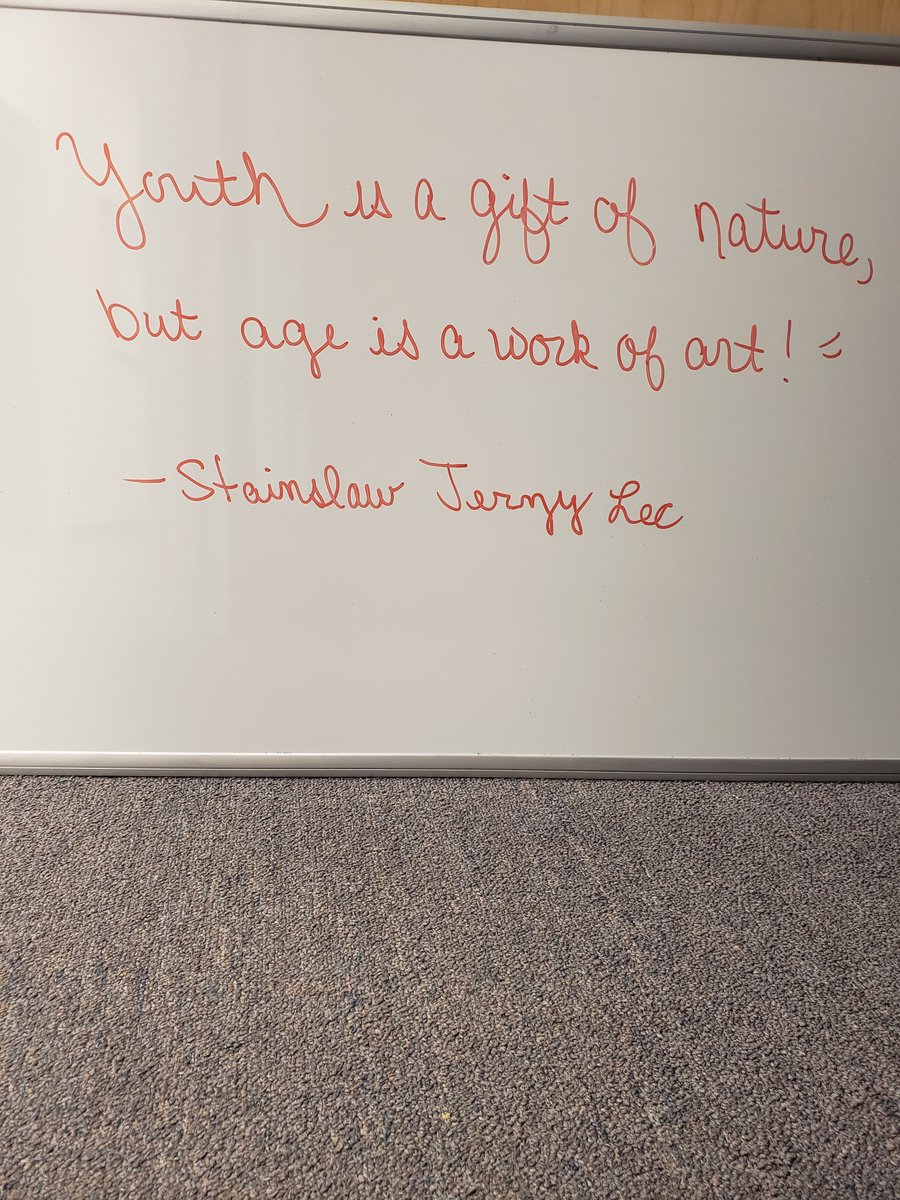 Youth is a gift of nature,
but age is a work of art!
- Stainslaw Jerzy Lec